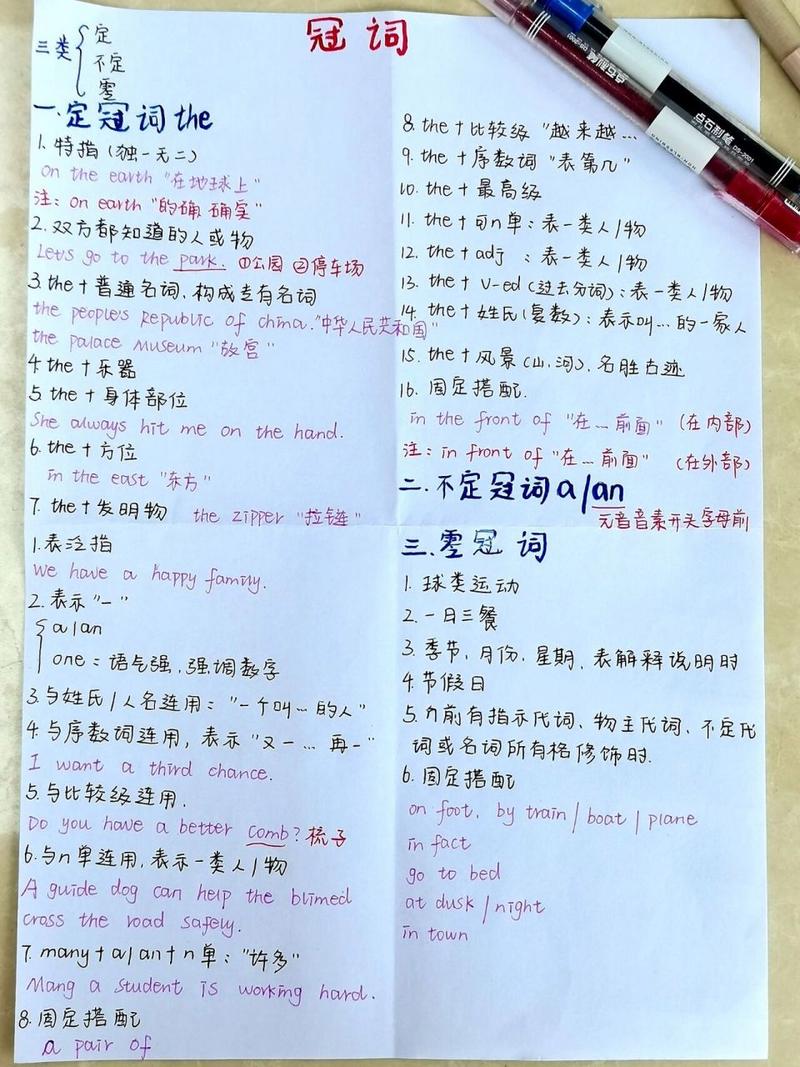 冠词
三类
定
不定
零
一.定冠词the
1. 特指(独一无二)
on the earth "在地球上"
注: on earth "的确,确实"
2. 双方都知道的人或物
Let's go to the park. ①公园 ②停车场
3. the+普通名词,构成专有名词
the people's Republic of china."中华人民共和国"
the palace Museum "故宫"
4 the+乐器
5 the+身体部位
She always hit me on the hand.
6. the+方位
in the east "东方"
7. the+发明物 the zipper "拉链"
8. the+比较级 "越来越...
9. the+序数词 "表第几"
10. the+最高级
11. the+可n单:表一类人/物
12. the+adj :表一类人/物
13. the+v-ed(过去分词):表一类人/物
14. the+姓氏(复数):表示叫...的一家人
15. the+风景(山.河).名胜古迹
16. 固定搭配.
in the front of "在...前面" (在内部)
注: in front of "在...前面" (在外部)
二.不定冠词a/an
元音音素开头字母前
1.表泛指
We have a happy family.
2.表示"一"
a/an
one=语气强,强调数字
3.与姓氏/人名连用:"一个叫...的人"
4.与序数词连用,表示"又一...再一"
I want a third chance.
5.与比较级连用.
Do you have a better comb? 梳子
6.与n单连用,表示一类人/物
A guide dog can help the blimed
cross the road safely.
7. many+a/an+n单:"许多"
Mang a student is working hard.
8.固定搭配
a pair of
三.零冠词
1. 球类运动
2.一日三餐
3.季节,月份,星期,表解释说明时
4.节假日
5.n前有指示代词、物主代词、不定代
词或名词所有格修饰时.
6.固定搭配
on foot, by train/boat/plane
in fact
go to bed
at dusk/night
in town
点石制笔
点石制笔 DS-2001